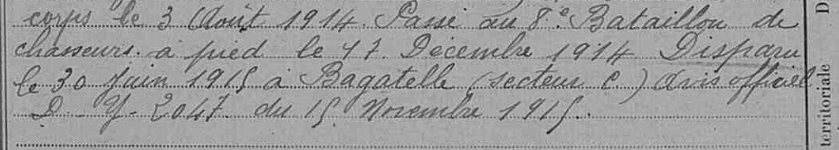 corps le 3 Août 1914. Passé au 8.e Bataillon de
chasseurs à pied le 17 Décembre 1914 Disparu
le 30 Juin 1915 à Bagatelle (secteur C) Avis officiel
D. Y. 2047. du 15 Novembre 1915.
territoriale